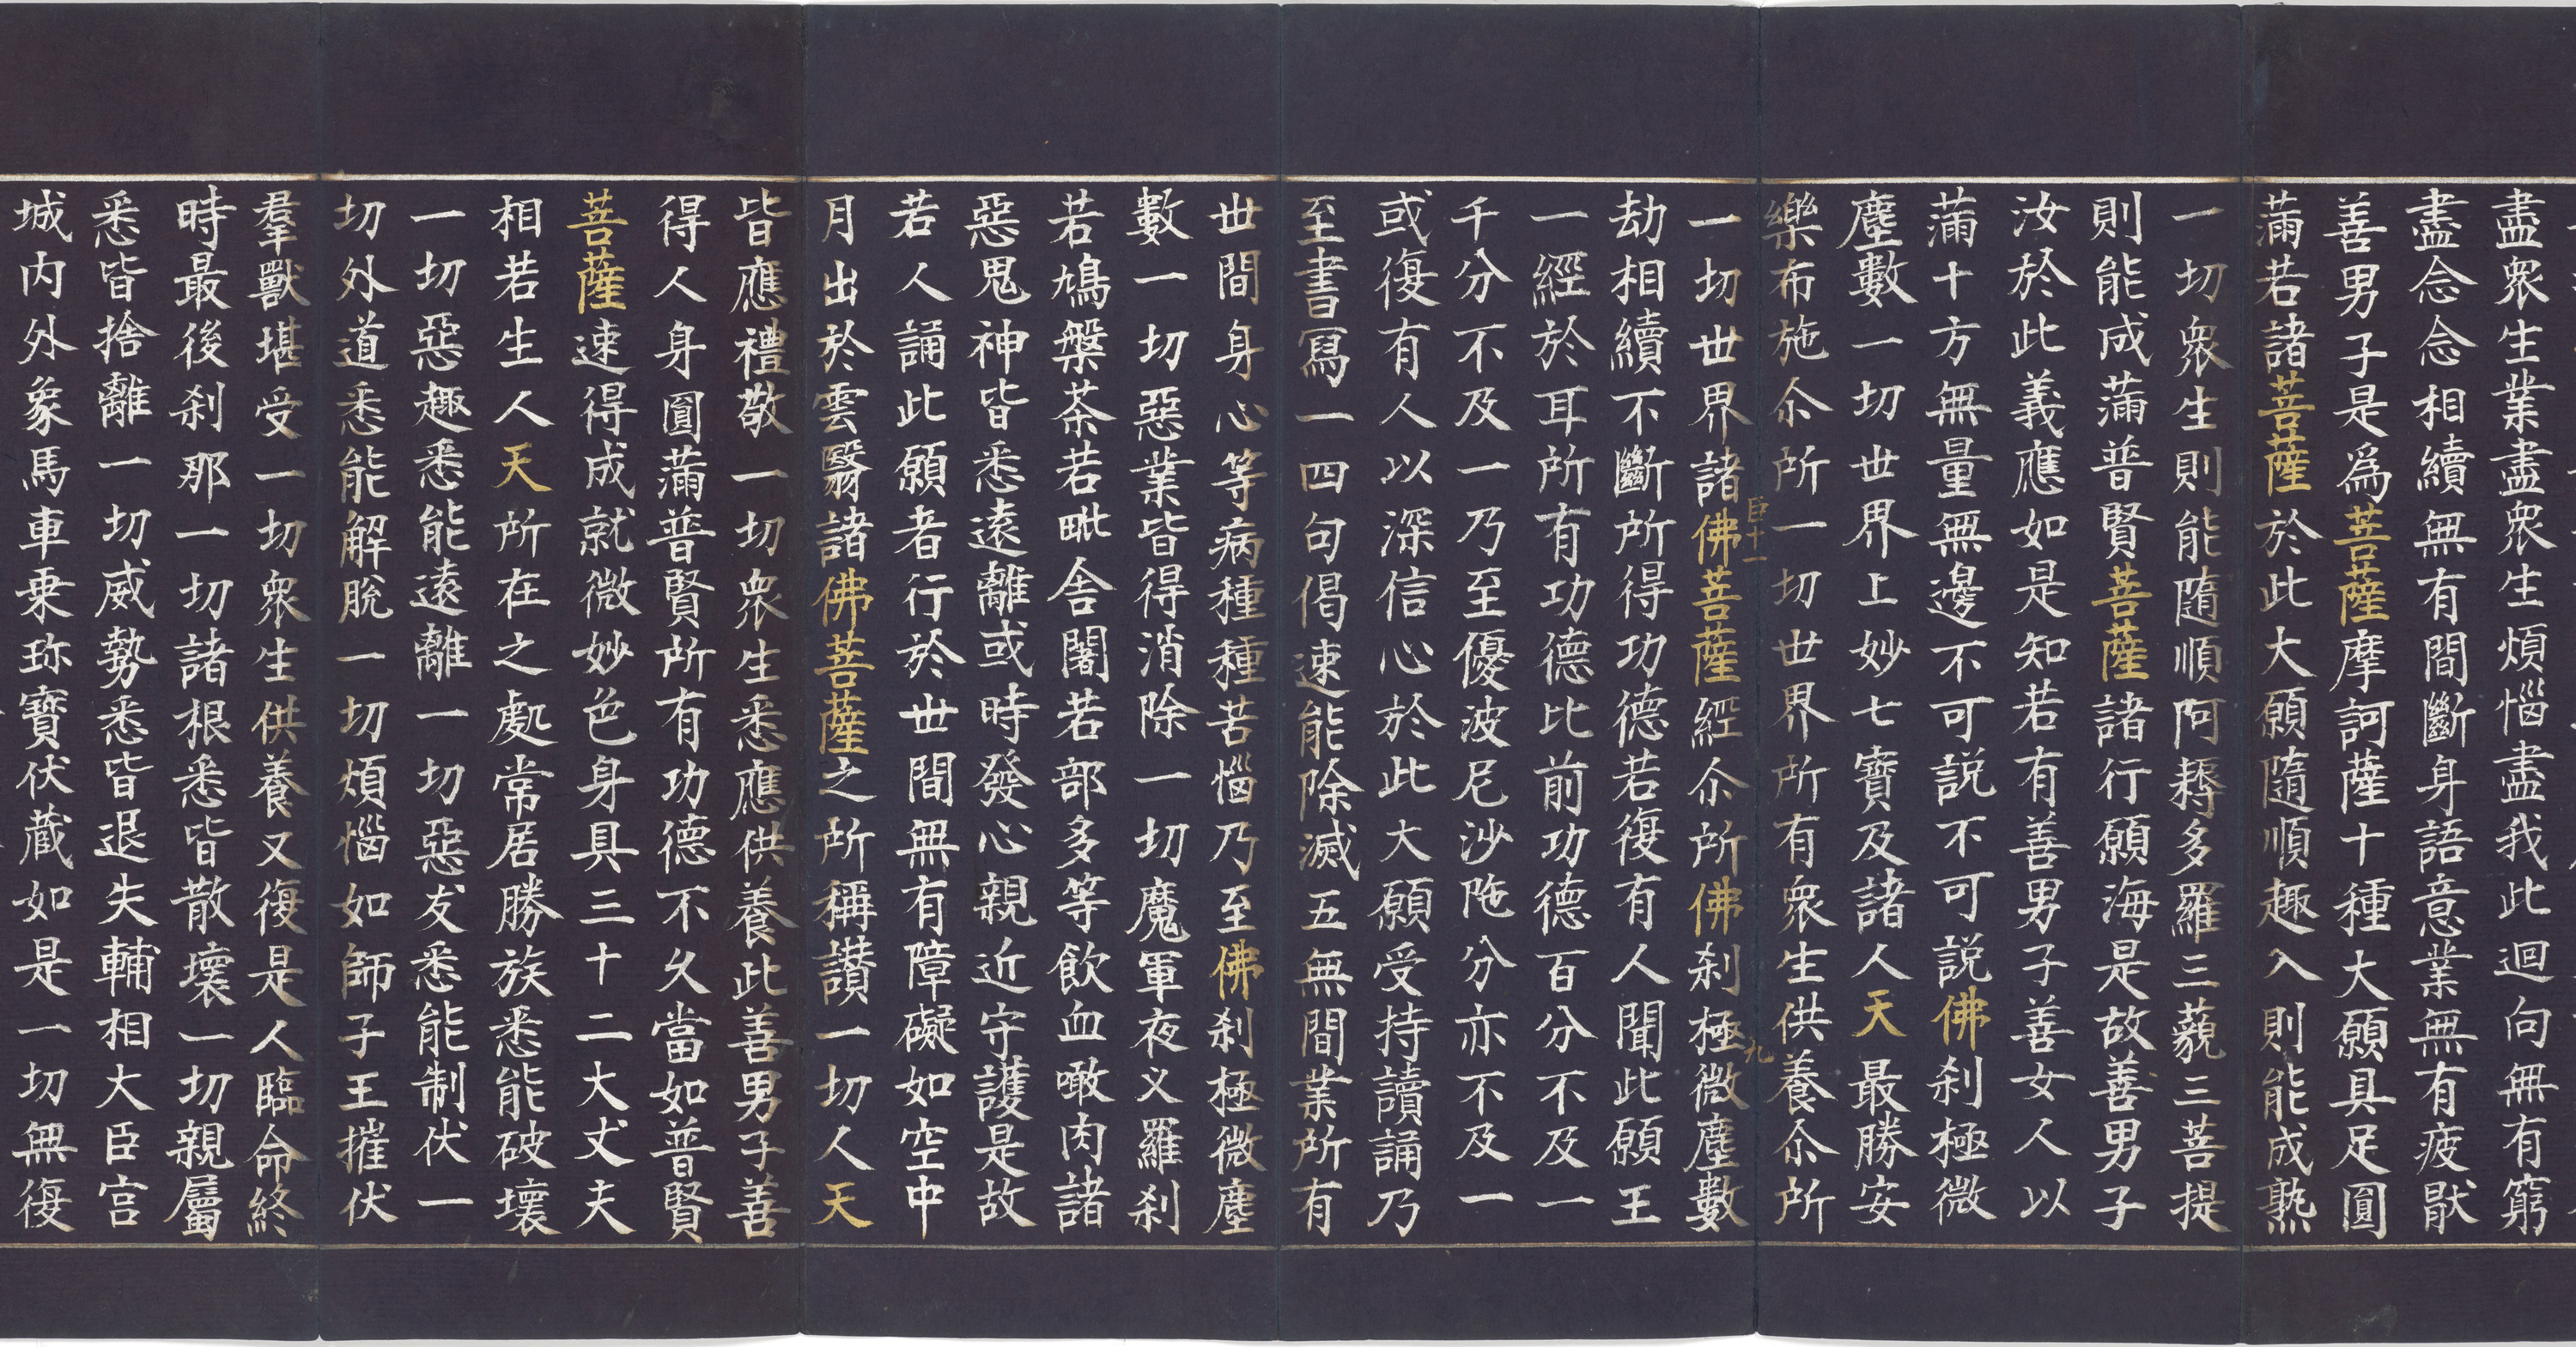 盡衆生業盡衆生煩惱盡我此迴向無有窮
盡念念相續無有間斷身語意業無有疲猒
善男子是爲菩薩摩訶薩十種大願具足圓
滿若諸菩薩於此大願隨順趣入則能成熟
一切衆生則能隨順阿耨多羅三藐三菩提
則能成滿普賢菩薩諸行願海是故善男子
汝於此義應如是知若有善男子善女人以
滿十方無量無邊不可說不可說佛刹極微
塵數一切世界上妙七寶及諸人天最勝安
樂布施尒所一切世界所有衆生供養尒所
一切世界諸佛菩薩經尒所佛刹極微塵數
劫相續不斷所得功德若復有人聞此願王
一經於耳所有功德比前功德百分不及一
千分不及一乃至優波尼沙陁分亦不及一
或復有人以深信心於此大願受持讀誦乃
至書寫一四句偈速能除滅五無間業所有
世間身心等病種種苦惱乃至佛刹極微塵
數一切惡業皆得消除一切魔軍夜义羅刹
若鳩槃茶若毗舍闍若部多等飲血噉肉諸
惡鬼神皆悉遠離或時發心親近守護是故
若人誦此願者行於世間無有障礙如空中
月出於雲翳諸佛菩薩之所稱讚一切人天
皆應禮敬一切衆生悉應供養此善男子善
得人身圓滿普賢所有功德不久當如普賢
菩薩速得成就微妙色身具三十二大丈夫
相若生人天所在之處常居勝族悉能破壞
一切惡趣悉能遠離一切惡友悉能制伏一
切外道悉能解脫一切煩惱如師子王摧伏
羣獸堪受一切衆生供養又復是人臨命終
時最後刹那一切諸根悉皆散壞一切親屬
悉皆捨離一切威勢悉皆退失輔相大臣宮
城内外象馬車乗珎寶伏藏如是一切無復